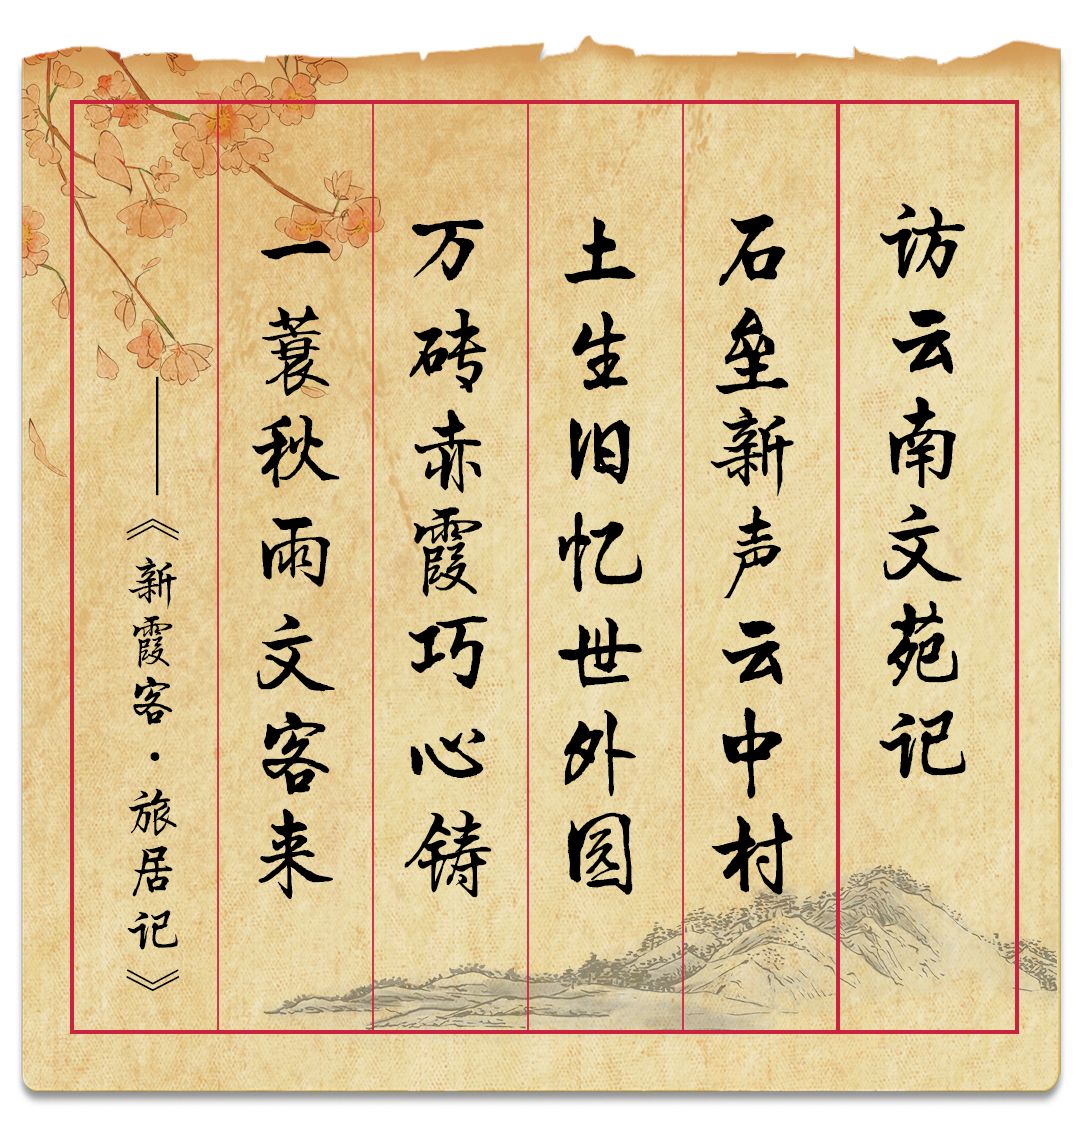 访云南文苑记
石垒新声云中村
土生旧忆世外园
万砖赤霞巧心铸
一蓑秋雨文客来
——《新霞客·旅居记》